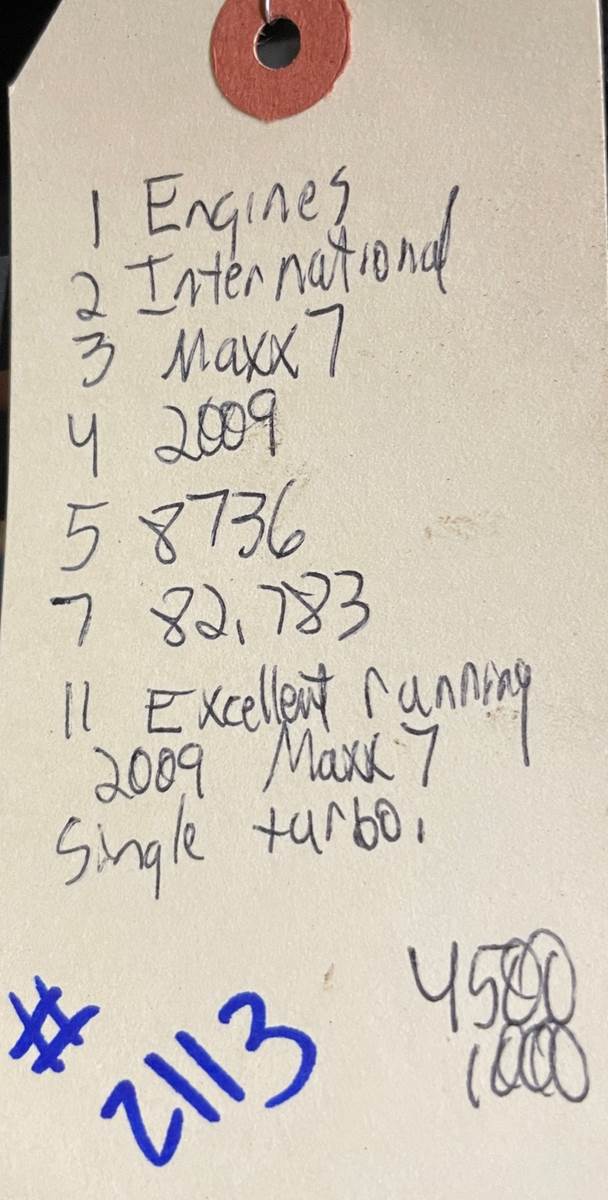 1 Engines
2 International
3 Maxx 7
4 2009
5 8736
7 82,783
11 Excellent running
2009 Maxx 7
Single turbo.
4500
1000
# 2113